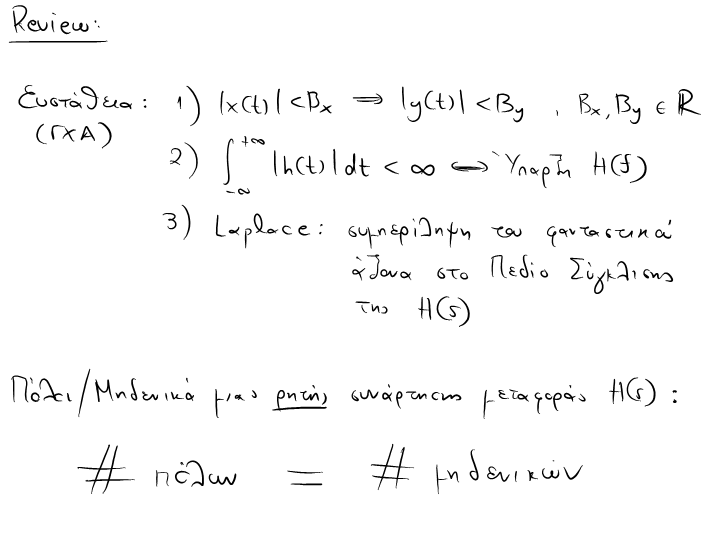 Review:
Ευστάθεια: 1) |x(t)| < Bx ⇒ |y(t)| < By , Bx, By ∈ ℝ
(ΓΧΑ)
2) ∫_{-∞}^{+∞} |h(t)| dt < ∞ ⇔ Ύπαρξη H(f)
3) Laplace: συμπερίληψη του φανταστικού
άξονα στο Πεδίο Σύγκλισης
της H(s)
Πόλοι/Μηδενικά μιας ρητής συνάρτησης μεταφοράς H(s):
# πόλων = # μηδενικών